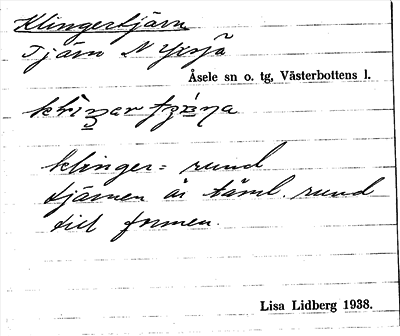 Klingertjärn
Tjärn N Yxsjö
Åsele sn o. tg, Västerbottens l.
klinger = rund
tjärnen är täml. rund
till formen.
Lisa Lidberg 1938.